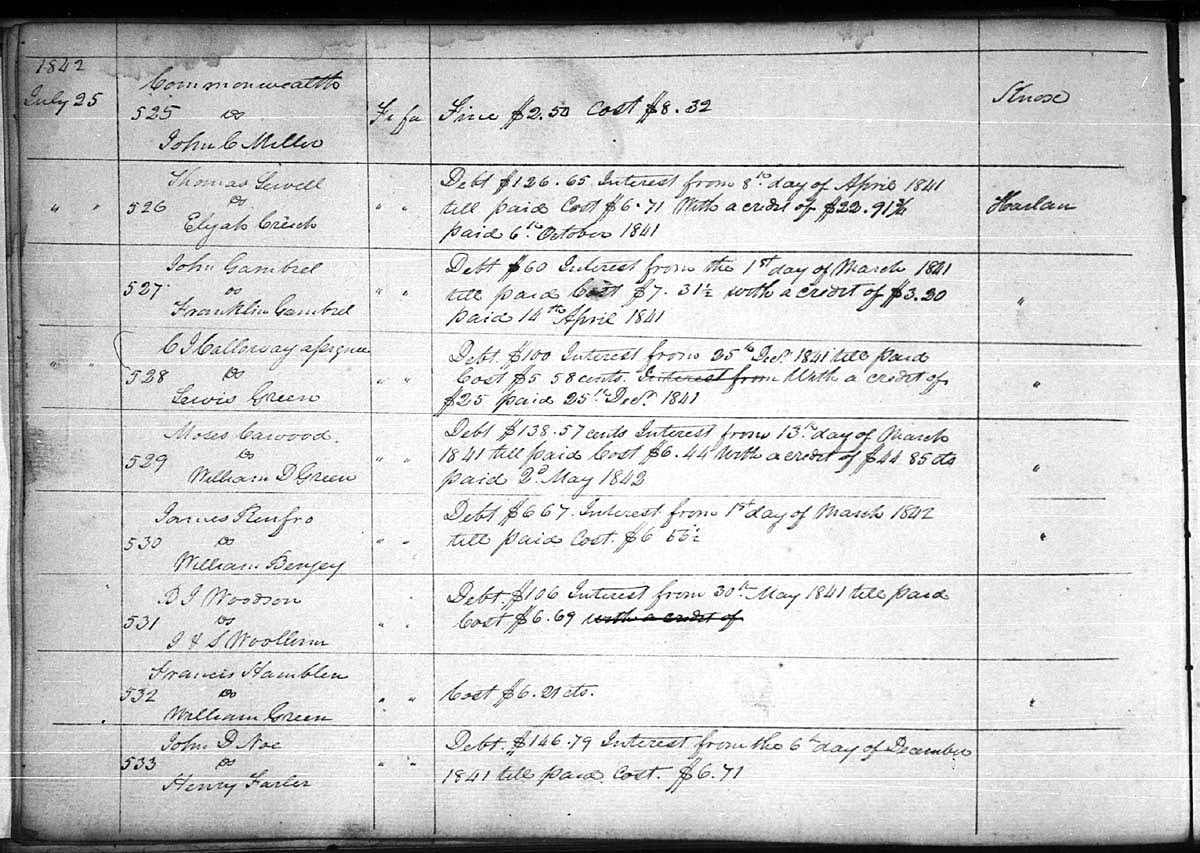 1842
July 25 Commonwealth
525 vs Fi fa Fine $2.50 Cost $8.32 Knox
John C Miller
Thomas Sewell Debt $126.65 Interest from 8th day of April 1841
" " 526 vs " " till paid Cost $6.71 With a credit of $22.91¾ Harlan
Elijah Creech paid 6th October 1841
John Gambrel Debt $60 Interest from the 1st day of March 1841
527 vs " " till paid Cost $7.31½ with a credit of $3.20 "
Franklin Gambrel paid 14th April 1841
C J Calloway assignee Debt. $100 Interest from 25th Decr 1841 till paid
" " 528 vs " " Cost $5 58 cents. Interest from With a credit of "
Lewis Green $25 paid 25th Decr 1841
Moses Cawood. Debt $138.57 cents Interest from 13th day of March
529 vs " " 1841 till paid Cost $6.44 With a credit of $44 85 cts "
William D Green paid 2d May 1842
James Renfro Debt $667. Interest from 1st day of March 1842
530 vs " " till paid Cost. $6 "
William
B J Woodson Debt. $106 Interest from 30th May 1841 till paid
531 vs " " Cost $6.69 with a credit of
J & S
Francis Hamblen
532 vs " " Cost $6. 21 cts. "
William Green
John D Noe Debt. $146.79 Interest from the 6th day of December
533 vs " " 1841 till paid. Cost. $6.71
Henry Farler